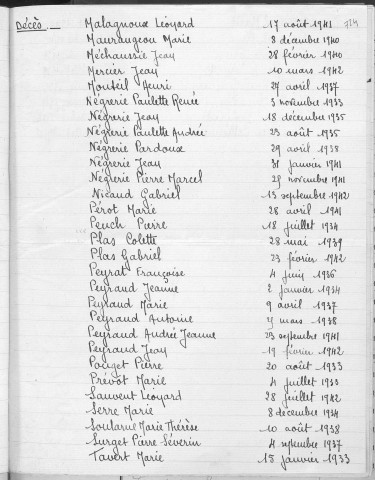 Décès _ Malagnoux Léonard 17 août 1941 724
Mauraugeon Marie 8 décembre 1940
Méchaussie Jean 28 février 1940
Mercier Jean 10 mars 1942
Monteil Henri 27 avril 1937
Négrerie Paulette Renée 3 novembre 1933
Négrerie Jean 18 décembre 1935
Négrerie Paulette Andrée 23 août 1935
Négrerie Pardoux 29 avril 1938
Négrerie Jean 31 janvier 1941
Négrerie Pierre Marcel 25 novembre 1941
Nicaud Gabriel 13 septembre 1942
Pérot Marie 28 avril 1941
Peuch Pierre 18 juillet 1934
Plas Colette 28 mai 1939
Plas Gabriel 23 février 1942
Peyrat Françoise 4 juin 1936
Peyraud Jeanne 2 janvier 1934
Peyraud Marie 9 avril 1937
Peyraud Antoine 5 mars 1938
Peyraud Andrée Jeanne 23 septembre 1941
Peyraud Jean 19 février 1942
Pouget Pierre 20 août 1933
Prévot Marie 4 juillet 1933
Sauvent Léonard 28 juillet 1942
Serre Marie 8 décembre 1934
Soularue Marie Thérèse 10 août 1938
Surget Pierre Séverin 4 septembre 1937
Tavert Marie 15 janvier 1933